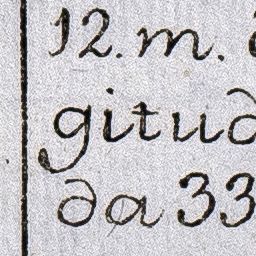 12. m.
gitud
da 33